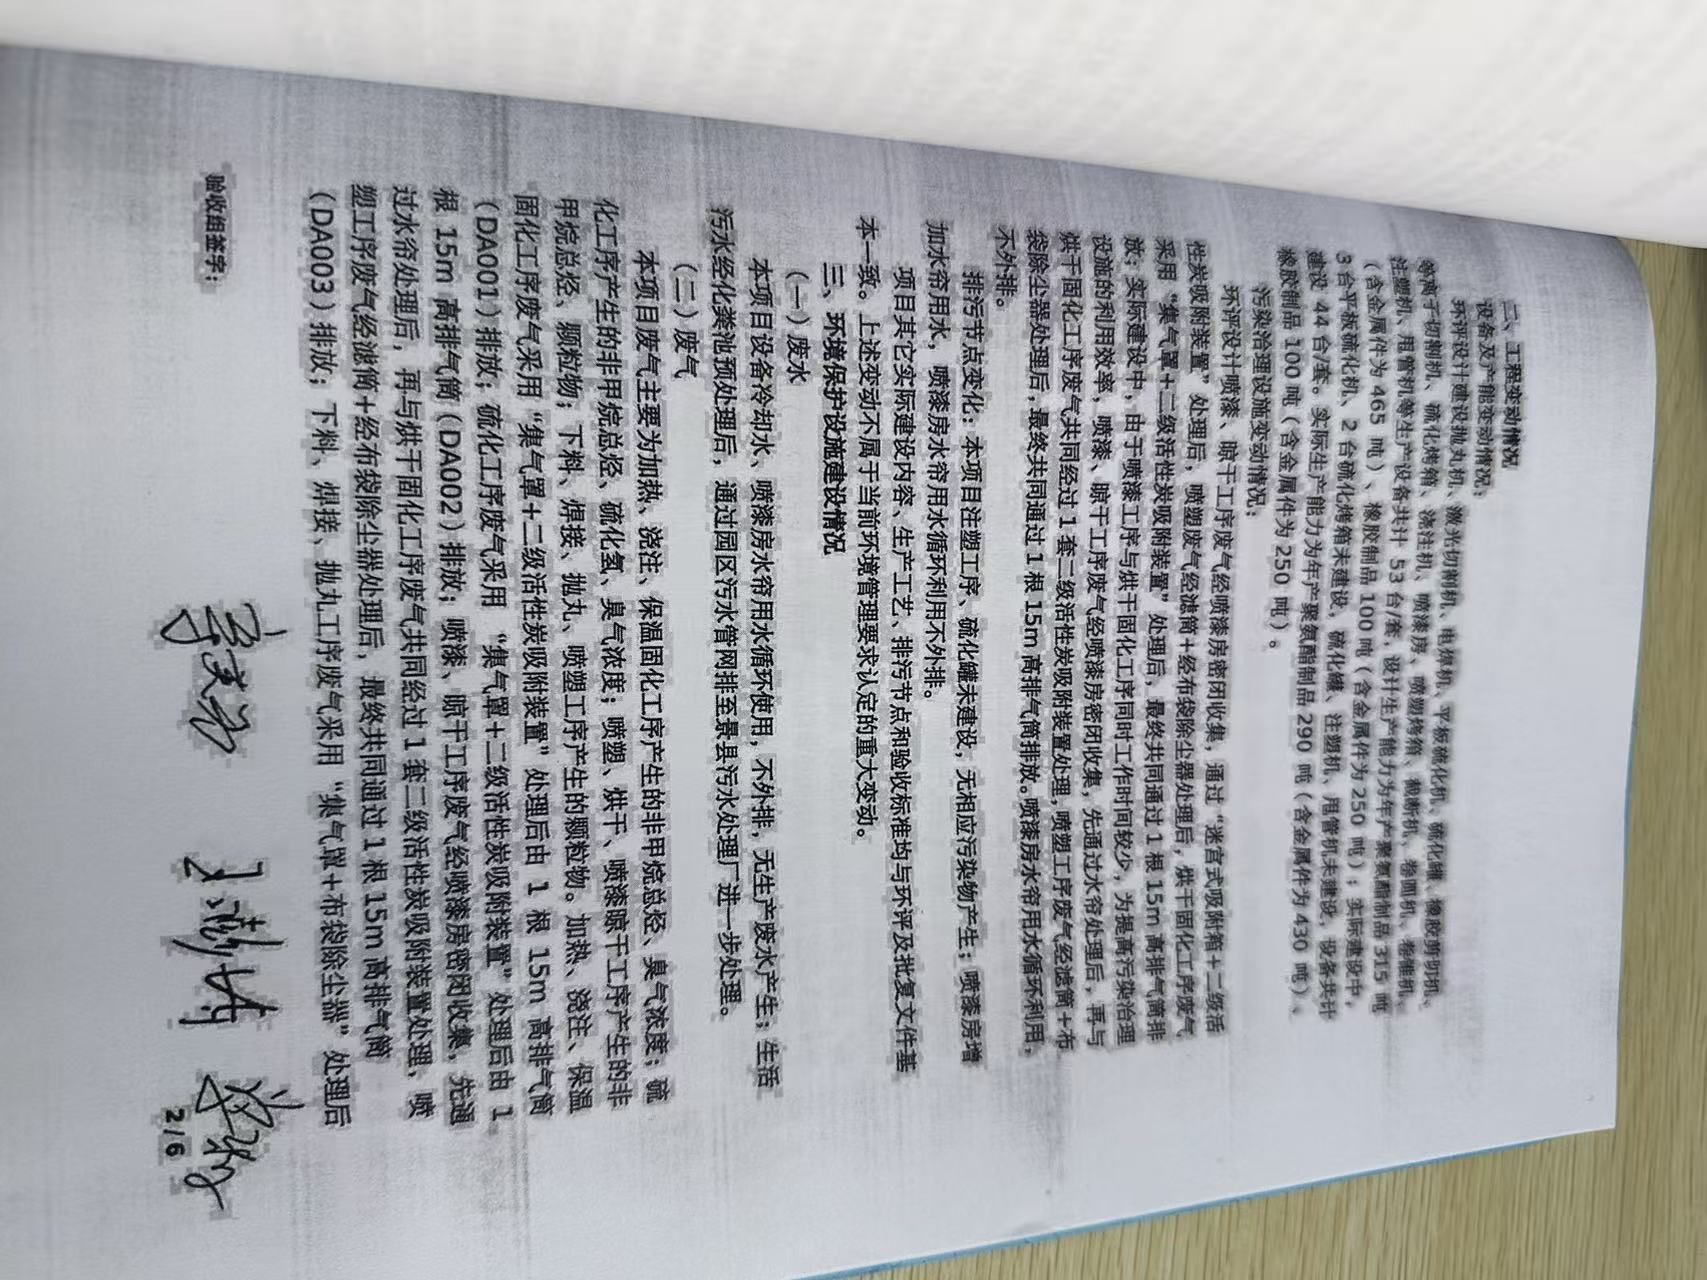 二、工程变动情况
设备及产能变动情况：
环评设计建设抛丸机、激光切割机、电焊机、平板硫化机、硫化罐、橡胶剪切机、
等离子切割机、硫化烤箱、浇注机、喷漆房、喷塑烤箱、截断机、卷圆机、卷僵机、
注塑机、甩管机等生产设备共计 53 台/套，设计生产能力为年产聚氨酯制品 315 吨
（含金属件为 465 吨）、橡胶制品 100 吨（含金属件为 250 吨）；实际建设中，
3 台平板硫化机、2 台硫化烤箱未建设，硫化罐、注塑机、甩管机未建设，设备共计
建设 44 台/套。实际生产能力为年产聚氨酯制品 290 吨（含金属件为 430 吨）、
橡胶制品 100 吨（含金属件为 250 吨）。
污染治理设施变动情况：
环评设计喷漆、晾干工序废气经喷漆房密闭收集，通过“迷宫式吸附箱+二级活
性炭吸附装置”处理后，喷塑废气经滤筒+经布袋除尘器处理后，烘干固化工序废气
采用“集气罩+二级活性炭吸附装置”处理后，最终共同通过 1 根 15m 高排气筒排
放；实际建设中，由于喷漆工序与烘干固化工序同时工作时间较少，为提高污染治理
设施的利用效率，喷漆、晾干工序废气经喷漆房密闭收集，先通过水帘处理后，再与
烘干固化工序废气共同经过 1 套二级活性炭吸附装置处理，喷塑工序废气经滤筒+布
袋除尘器处理后，最终共同通过 1 根 15m 高排气筒排放。喷漆房水帘用水循环利用，
不外排。
排污节点变化：本项目注塑工序、硫化罐未建设，无相应污染物产生；喷漆房增
加水帘用水，喷漆房水帘用水循环利用不外排。
项目其它实际建设内容、生产工艺、排污节点和验收标准均与环评及批复文件基
本一致。上述变动不属于当前环境管理要求认定的重大变动。
三、环境保护设施建设情况
（一）废水
本项目设备冷却水、喷漆房水帘用水循环使用，不外排，无生产废水产生；生活
污水经化粪池预处理后，通过园区污水管网排至景县污水处理厂进一步处理。
（二）废气
本项目废气主要为加热、浇注、保温固化工序产生的非甲烷总烃、臭气浓度；硫
化工序产生的非甲烷总烃、硫化氢、臭气浓度；喷塑、烘干、喷漆晾干工序产生的非
甲烷总烃、颗粒物；下料、焊接、抛丸、喷塑工序产生的颗粒物。加热、浇注、保温
固化工序废气采用“集气罩+二级活性炭吸附装置”处理后由 1 根 15m 高排气筒
（DA001）排放；硫化工序废气采用 “集气罩+二级活性炭吸附装置”处理后由 1
根 15m 高排气筒（DA002）排放；喷漆、晾干工序废气经喷漆房密闭收集，先通
过水帘处理后，再与烘干固化工序废气共同经过 1 套二级活性炭吸附装置处理，喷
塑工序废气经滤筒+经布袋除尘器处理后，最终共同通过 1 根 15m 高排气筒
（DA003）排放；下料、焊接、抛丸工序废气采用“集气罩+布袋除尘器”处理后
验收组签字：
2/6